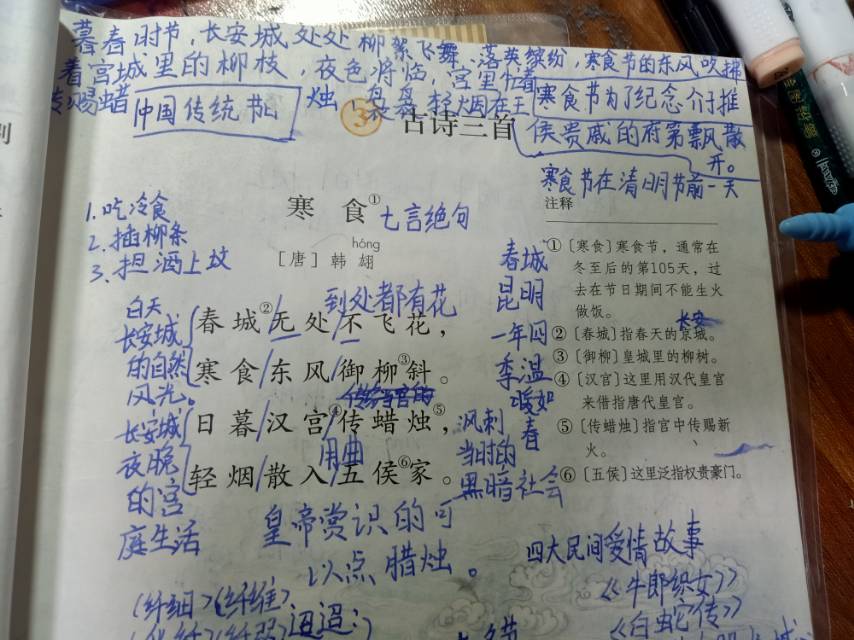 暮春时节,长安城处处柳絮飞舞、落英缤纷,寒食节的东风吹拂
着宫城里的柳枝,夜色将临,宫里忙着
传赐蜡
烛,袅袅
在王
侯贵戚的府第飘散
开。
中国传统节日
寒食节为了纪念介子推
寒食节在清明节前一天
3 古诗三首
1.吃冷食
2.插柳条
3.担酒上坟
寒食① 七言绝句
hóng
[唐]韩翃
到处都有花
春城②/无处/不飞花,
寒食/东风/御柳③斜。
日暮/汉宫④/传蜡烛⑤,
用典
轻烟/散入/五侯⑥家。
白天
长安城
的自然
风光。
长安城
夜晚
的宫
庭生活
春城
昆明
一年四
季温
暖如
春
讽刺
当时的
黑暗社会
皇帝赏识的可
以点腊烛。
注释
①〔寒食〕寒食节,通常在
冬至后的第105天,过
去在节日期间不能生火
做饭。
长安
②〔春城〕指春天的京城。
③〔御柳〕皇城里的柳树。
④〔汉宫〕这里用汉代皇宫
来借指唐代皇宫。
⑤〔传蜡烛〕指宫中传赐新
火。
⑥〔五侯〕这里泛指权贵豪门。
四大民间爱情故事
《牛郎织女》
《白蛇传》
(纤细)(纤维)
迢迢: